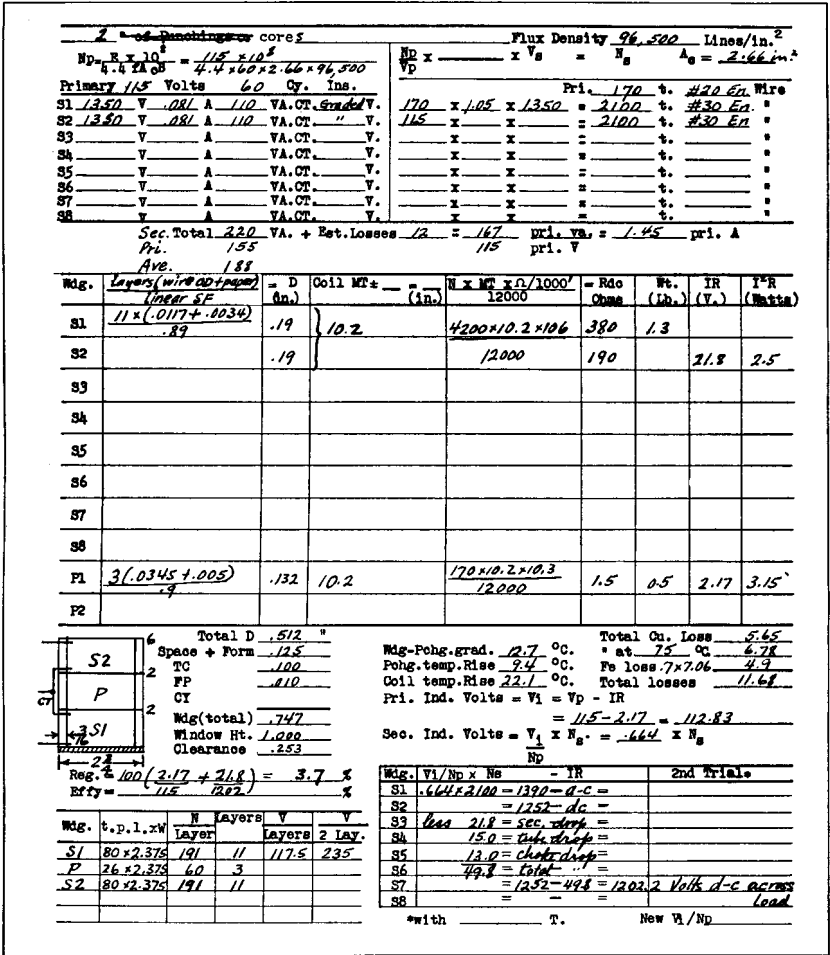 2 # of Punchings or cores Flux Density 96,500 Lines/in.2
Np = E x 10^8 / 4.4 f Ac B = 115 x 10^8 / 4.4 x 60 x 2.66 x 96,500 Np/Vp x ____ x Vs = Ns Ac = 2.66 in.2
Primary 115 Volts 60 Cy. Ins. Pri. 170 t. #20 En. Wire
S1 1350 V .081 A 110 VA.CT. Graded V. 170 x 1.05 x 1350 = 2100 t. #30 En. "
S2 1350 V .081 A 110 VA.CT. " V. 115 x x = 2100 t. #30 En "
S3 V A VA.CT. V. x x = t. "
S4 V A VA.CT. V. x x = t. "
S5 V A VA.CT. V. x x = t. "
S6 V A VA.CT. V. x x = t. "
S7 V A VA.CT. V. x x = t. "
S8 V A VA.CT. V. x x = t. "
Sec. Total 220 VA. + Est. Losses 12 = 167 pri. va. = 1.45 pri. A
Pri. 155 115 pri. V
Ave. 188
Wdg. Layers (wire OD + paper) / linear SF = D (in.) Coil MT± __ = __ (in.) N x MT x Ω/1000' / 12000 = Rdc Ohms Wt. (Lb.) IR (V.) I²R (Watts)
S1 11 x (.0117 + .0034) / .89 .19 10.2 4200 x 10.2 x 106 380 1.3
S2 .19 12000 190 21.8 2.5
S3
S4
S5
S6
S7
S8
P1 3(.0345 + .005) / .9 .132 10.2 170 x 10.2 x 10.3 / 12000 1.5 0.5 2.17 3.15
P2
Total D .512 "
Space + Form .125
TC .100
FP .010
CY
Wdg(total) .747
Window Ht. 1.000
Clearance .253
6
S2
2
P
2
CT
3/16 S1
2 3/4
Reg. = 100 (2.17/115 + 21.8/1202) = 3.7 %
Effy = %
Wdg-Pchg.grad. 12.7 °C.
Pchg.temp.Rise 9.4 °C.
Coil temp.Rise 22.1 °C.
Total Cu. Loss 5.65
" at 75 °C 6.78
Fe loss .7x7.06 4.9
Total losses 11.68
Pri. Ind. Volts = Vi = Vp - IR
= 115 - 2.17 = 112.83
Sec. Ind. Volts = Vi/Np x Ns. = .664 x Ns
Wdg. t.p.l.xW N Layer Layers V Layers V 2 Lay.
S1 80 x 2.375 191 11 117.5 235
P 26 x 2.375 60 3
S2 80 x 2.375 191 11
Wdg. Vi/Np x Ns - IR 2nd Trial*
S1 .664 x 2100 = 1390 - a-c =
S2 = 1252 - dc =
S3 less 21.8 = sec. drop =
S4 15.0 = tube drop =
S5 13.0 = choke drop =
S6 49.8 = total " =
S7 = 1252 - 49.8 = 1202.2 Volts d-c across
S8 = - = Load
*with ____ T. New Vi/Np ____